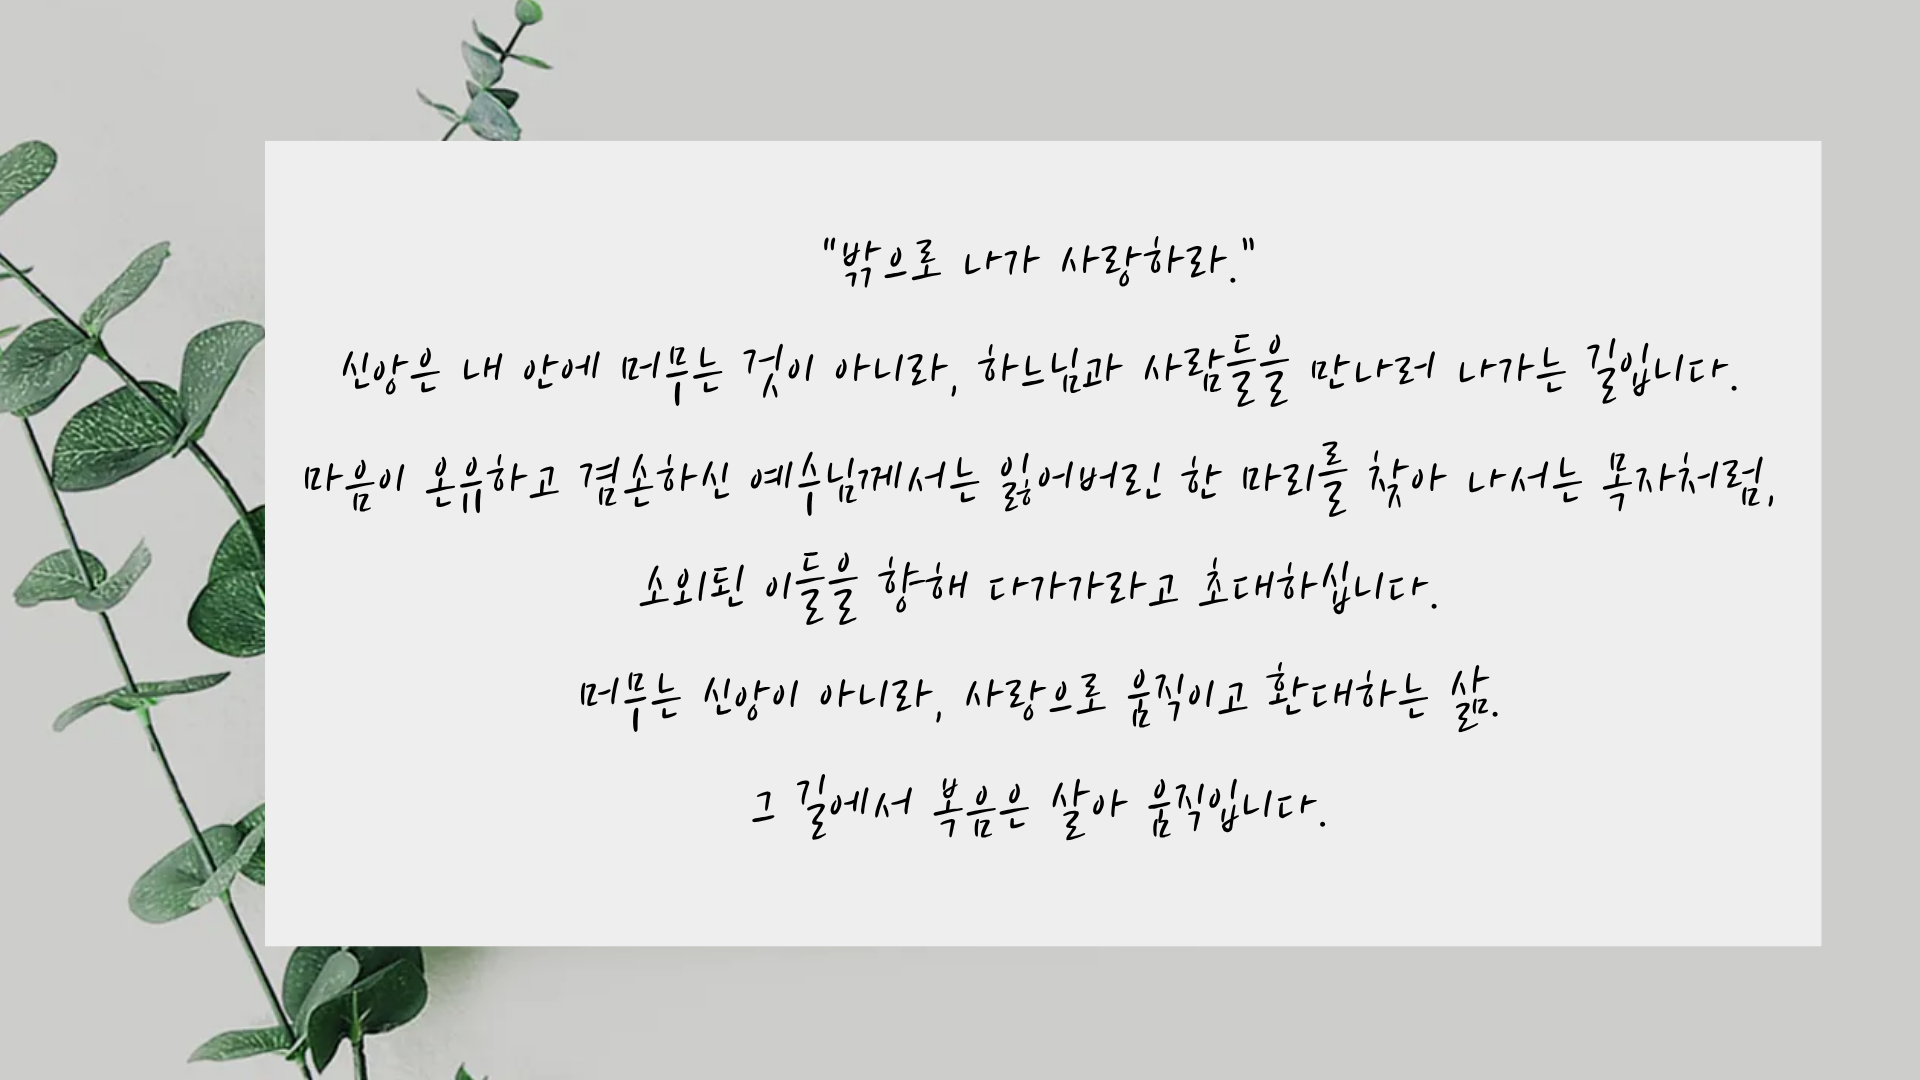 "밖으로 나가 사랑하라."
신앙은 내 안에 머무는 것이 아니라, 하느님과 사람들을 만나러 나가는 길입니다.
마음이 온유하고 겸손하신 예수님께서는 잃어버린 한 마리를 찾아 나서는 목자처럼,
소외된 이들을 향해 다가가라고 초대하십니다.
머무는 신앙이 아니라, 사랑으로 움직이고 환대하는 삶.
그 길에서 복음은 살아 움직입니다.